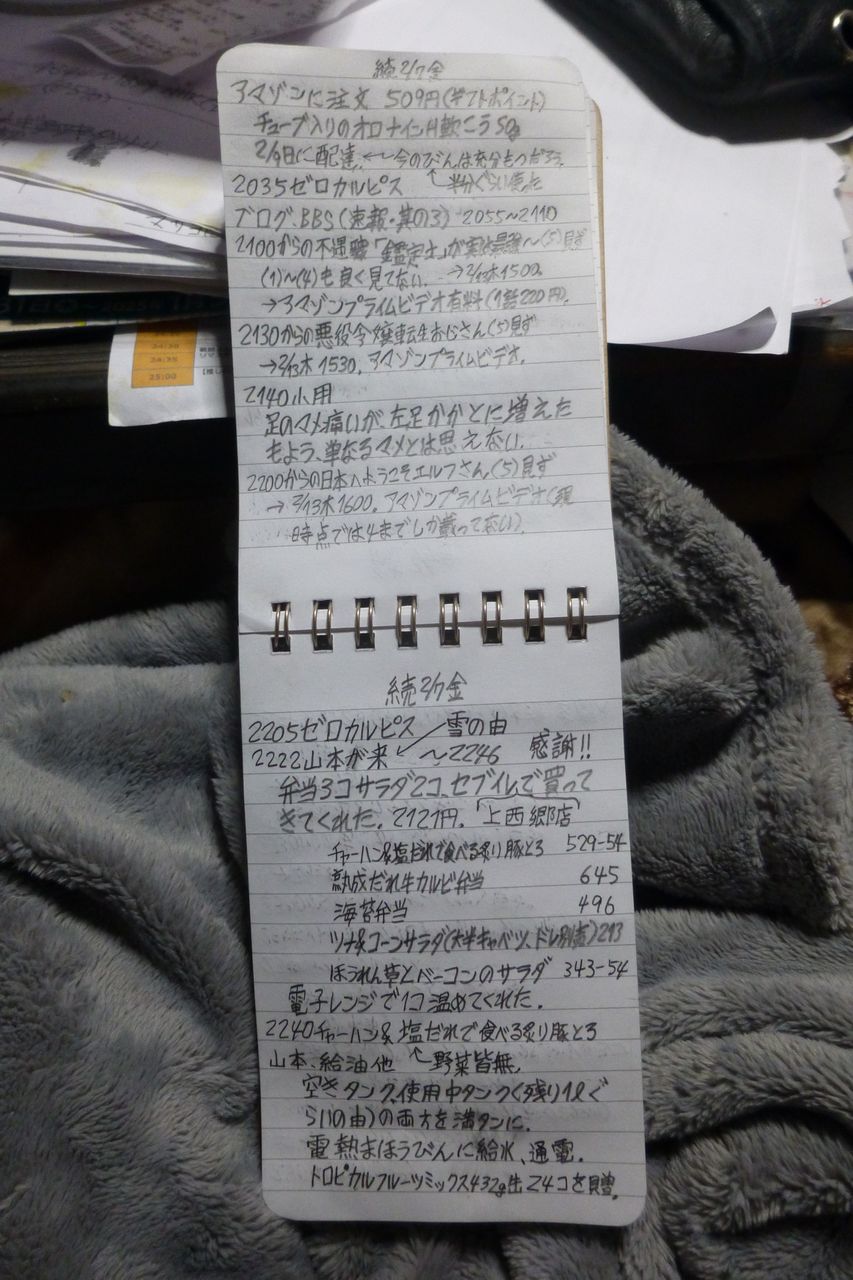 続2/7金
アマゾンに注文 509円(ギフトポイント)
チューブ入りのオロナインH軟こう50g
2/9日に配達。←今のびんは充分もつだろう。
2035ゼロカルピス ↑半分ぐらい使った
ブログ、BBS(速報・其の3) 2055~2110
2100からの不遇職「鑑定士」が実は最強~(5)見ず
(1)~(4)も良く見てない。→2/13木1500。
→アマゾンプライムビデオ有料(1話220円)。
2130からの悪役令嬢転生おじさん(5)見ず
→2/13木1530。アマゾンプライムビデオ。
2140小用
足のマメ痛いが、左足かかとに増えた
もよう、単なるマメとは思えない。
2200からの日本へようこそエルフさん。(5)見ず
→2/13木1600。アマゾンプライムビデオ(現
時点では4までしか載ってない)。
続2/7金
2205ゼロカルピス 雪の由
2222山本が来 ~2246 感謝!!
弁当3コサラダ2コ、セブイレで買って
きてくれた。2121円。「上西郷店」
チャーハン&塩だれで食べる炙り豚とろ 529-54
熟成だれ牛カルビ弁当 645
海苔弁当 496
ツナ&コーンサラダ(大半キャベツ、ドレ別売)213
ほうれん草とベーコンのサラダ 343-54
電子レンジで1コ温めてくれた。
2240チャーハン&塩だれで食べる炙り豚とろ
山本、給油他 ↑野菜皆無。
空きタンク、使用中タンク(残り1ℓぐ
らいの由)の両方を満タンに。
電熱まほうびんに給水、通電。
トロピカルフルーツミックス432g缶24コを贈。
24:30
24:35
25:00